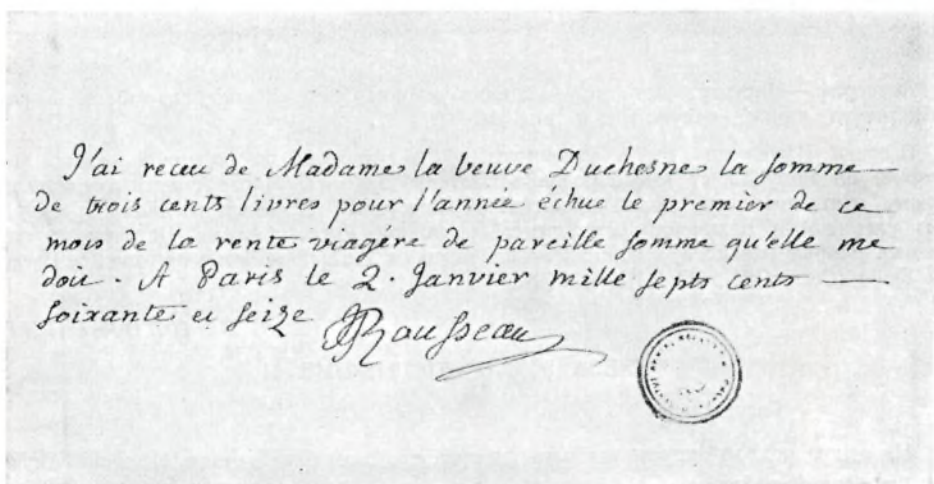 J'ai receu de Madame la veuve Duchesne la somme
de trois cents livres pour l'année échue le premier de ce
mois de la rente viagére de pareille somme qu'elle me
doit. A Paris le 2. Janvier mille septs cents
soixante et seize JJRousseau